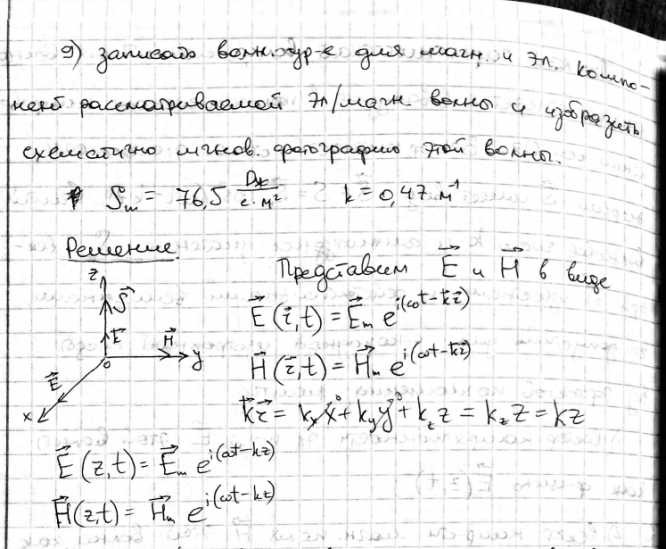 9) записать волн. ур-е для магн. и эл. компо-
нент рассматриваемой эл/магн волны и изобразить
схематично мгнов. фотографию этой волны.
S_m = 76,5 Дж/(с·м²) k = 0,47 м⁻¹
Решение.
Представим E⃗ и H⃗ в виде
z S⃗ k⃗ H⃗ 0 y E⃗ x
E⃗(r⃗,t) = E⃗_m e^{i(ωt-k⃗r⃗)}
H⃗(r⃗,t) = H⃗_m e^{i(ωt-k⃗r⃗)}
k⃗r⃗ = k_x x^0 + k_y y^0 + k_z z = k_z z = kz
E⃗(z,t) = E⃗_m e^{i(ωt-kz)}
H⃗(z,t) = H⃗_m e^{i(ωt-kz)}